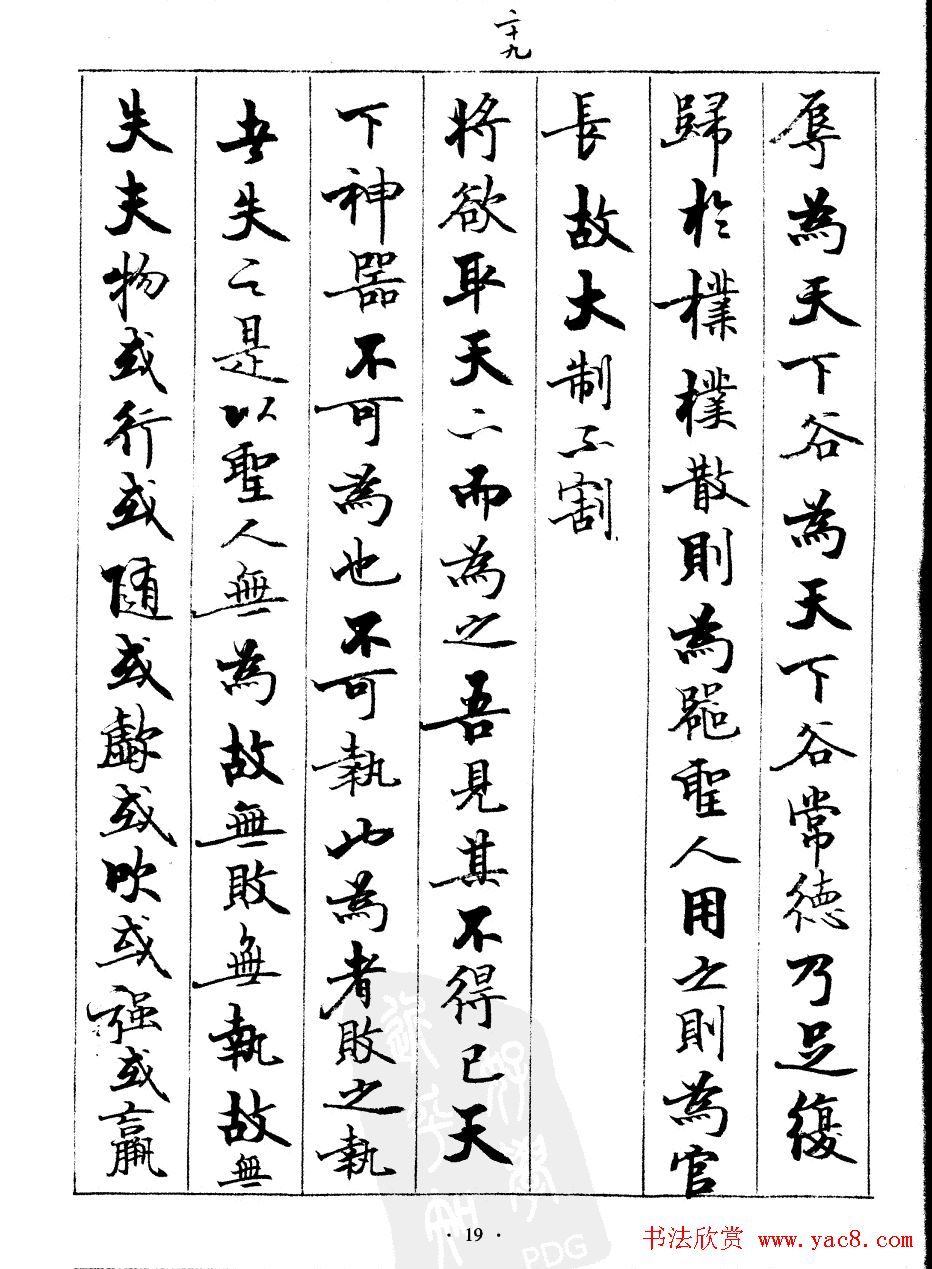 二十九
辱為天下谷為天下谷常德乃足復
歸於樸樸散則為器聖人用之則為官
長故大制不割
將欲取天下而為之吾見其不得已天
下神器不可為也不可執也為者敗之執
者失之是以聖人無為故無敗無執故無
失夫物或行或隨或歔或吹或强或羸
· 19 ·
PDG
书法欣赏 www.yac8.com